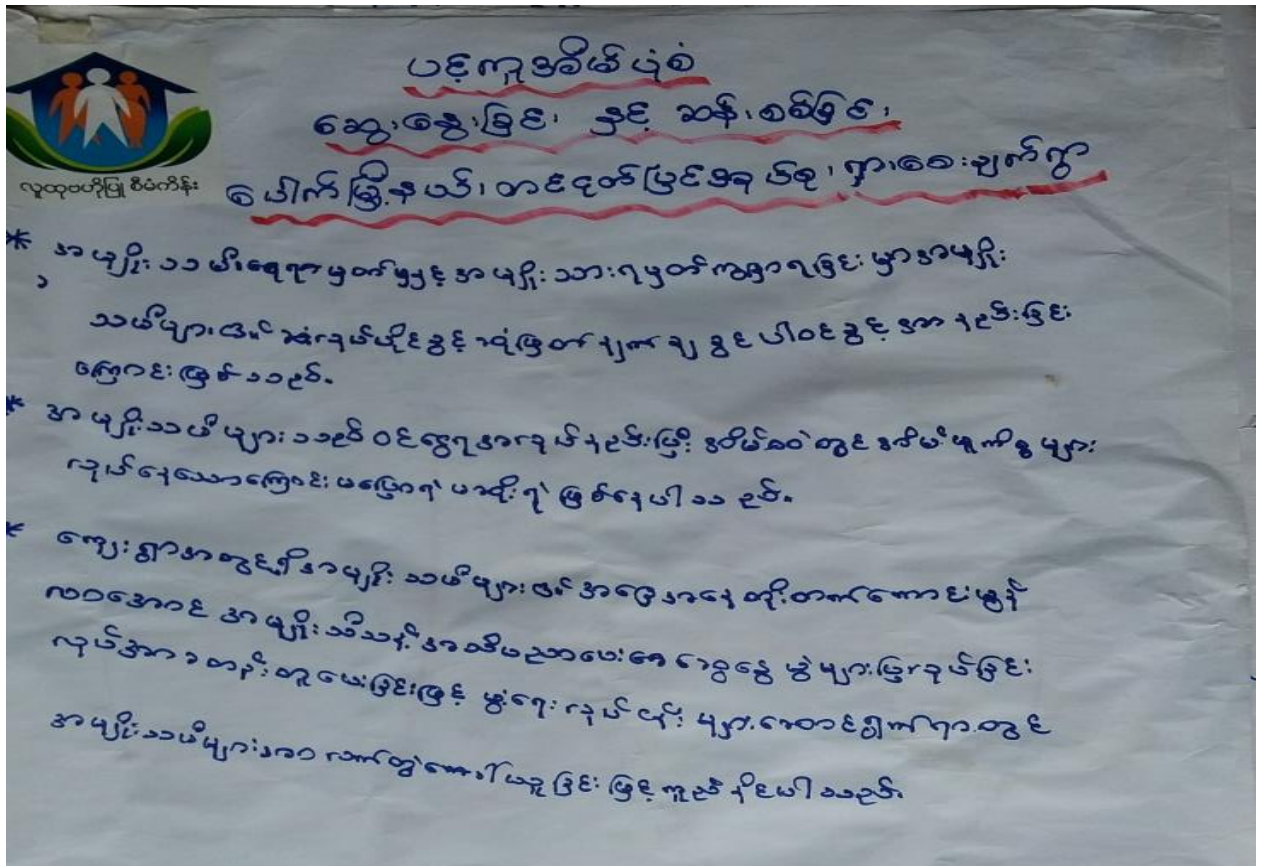 ပင့်ကူအိမ်ပုံစံ
ဆွေးနွေးခြင်း နှင့် ဆန်းစစ်ခြင်း
လူထုဗဟိုပြု စီမံကိန်း
ပေါက်မြို့နယ်၊ တင်ငုတ်ပြင်အုပ်စု၊ ရှားစေးချက်ရွာ
* အမျိုးသမီးရေရာမှတ်မျှနှင့် အမျိုးသားရမှတ်ကွာခြားရခြင်းမှာ အမျိုး
သမီများ၏ လုပ်ပိုင်ခွင့် ဆုံးဖြတ်ချက်ချခွင့် ပါဝင်ခွင့် အားနည်းခြင်း
ကြောင်းဖြစ်သည်။
* အမျိုးသမီများသည် ဝင်ငွေရအလုပ်နည်းပြီး အိမ်ထဲတွင် အိမ်မှုကိစ္စများ
လုပ်နေသောကြောင်း မပြောရဲ မဆိုးရဲ ဖြစ်နေပါသည်။
* ကျေးရွာအတွင်းရှိ အမျိုးသမီများ၏ အခြေအနေ တိုးတက်ကောင်းမွန်
လာအောင် အမျိုးသမီ အသိပညာပေး ဆွေးနွေးပွဲများပြုလုပ်ခြင်း
လုပ်အားခတန်းတူပေးခြင်းဖြင့် ဖွံ့ရေးလုပ်ငန်းများဆောင်ရွက်ရာတွင်
အမျိုးသမီများအား လက်တွဲခေါ်ယူခြင်းဖြင့် ကူညီနိုင်ပါသည်။